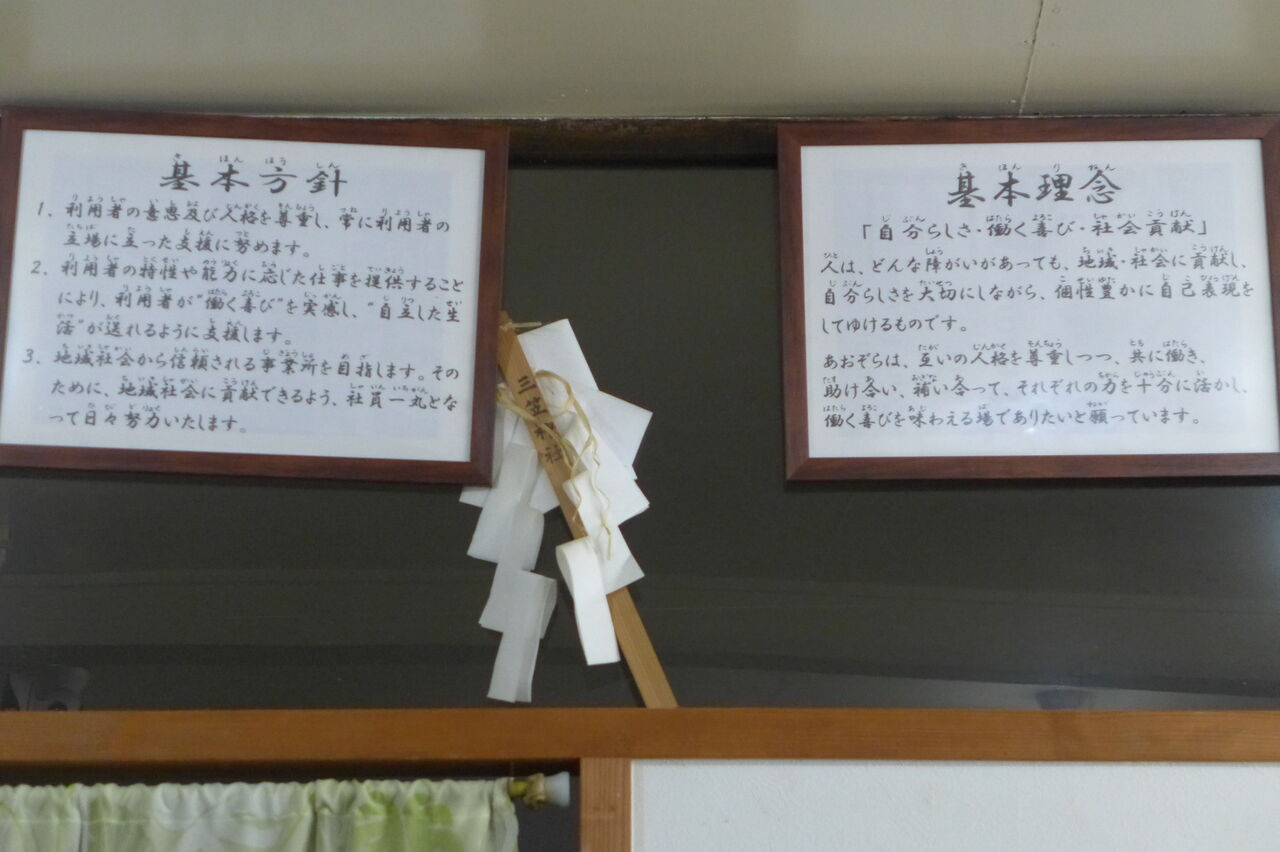 基本方針
1. 利用者の意思及び人格を尊重し、常に利用者の
立場に立った支援に努めます。
2. 利用者の特性や能力に応じた仕事を提供すること
により、利用者が“働く喜び”を実感し、“自立した生
活”が送れるように支援します。
3. 地域社会から信頼される事業所を目指します。その
ために、地域社会に貢献できるよう、社員一丸とな
って日々努力いたします。
三笠神社
基本理念
「自分らしさ・働く喜び・社会貢献」
人は、どんな障がいがあっても、地域・社会に貢献し、
自分らしさを大切にしながら、個性豊かに自己表現を
してゆけるものです。
あおぞらは、互いの人格を尊重しつつ、共に働き、
助け合い、補い合って、それぞれの力を十分に活かし、
働く喜びを味わえる場でありたいと願っています。